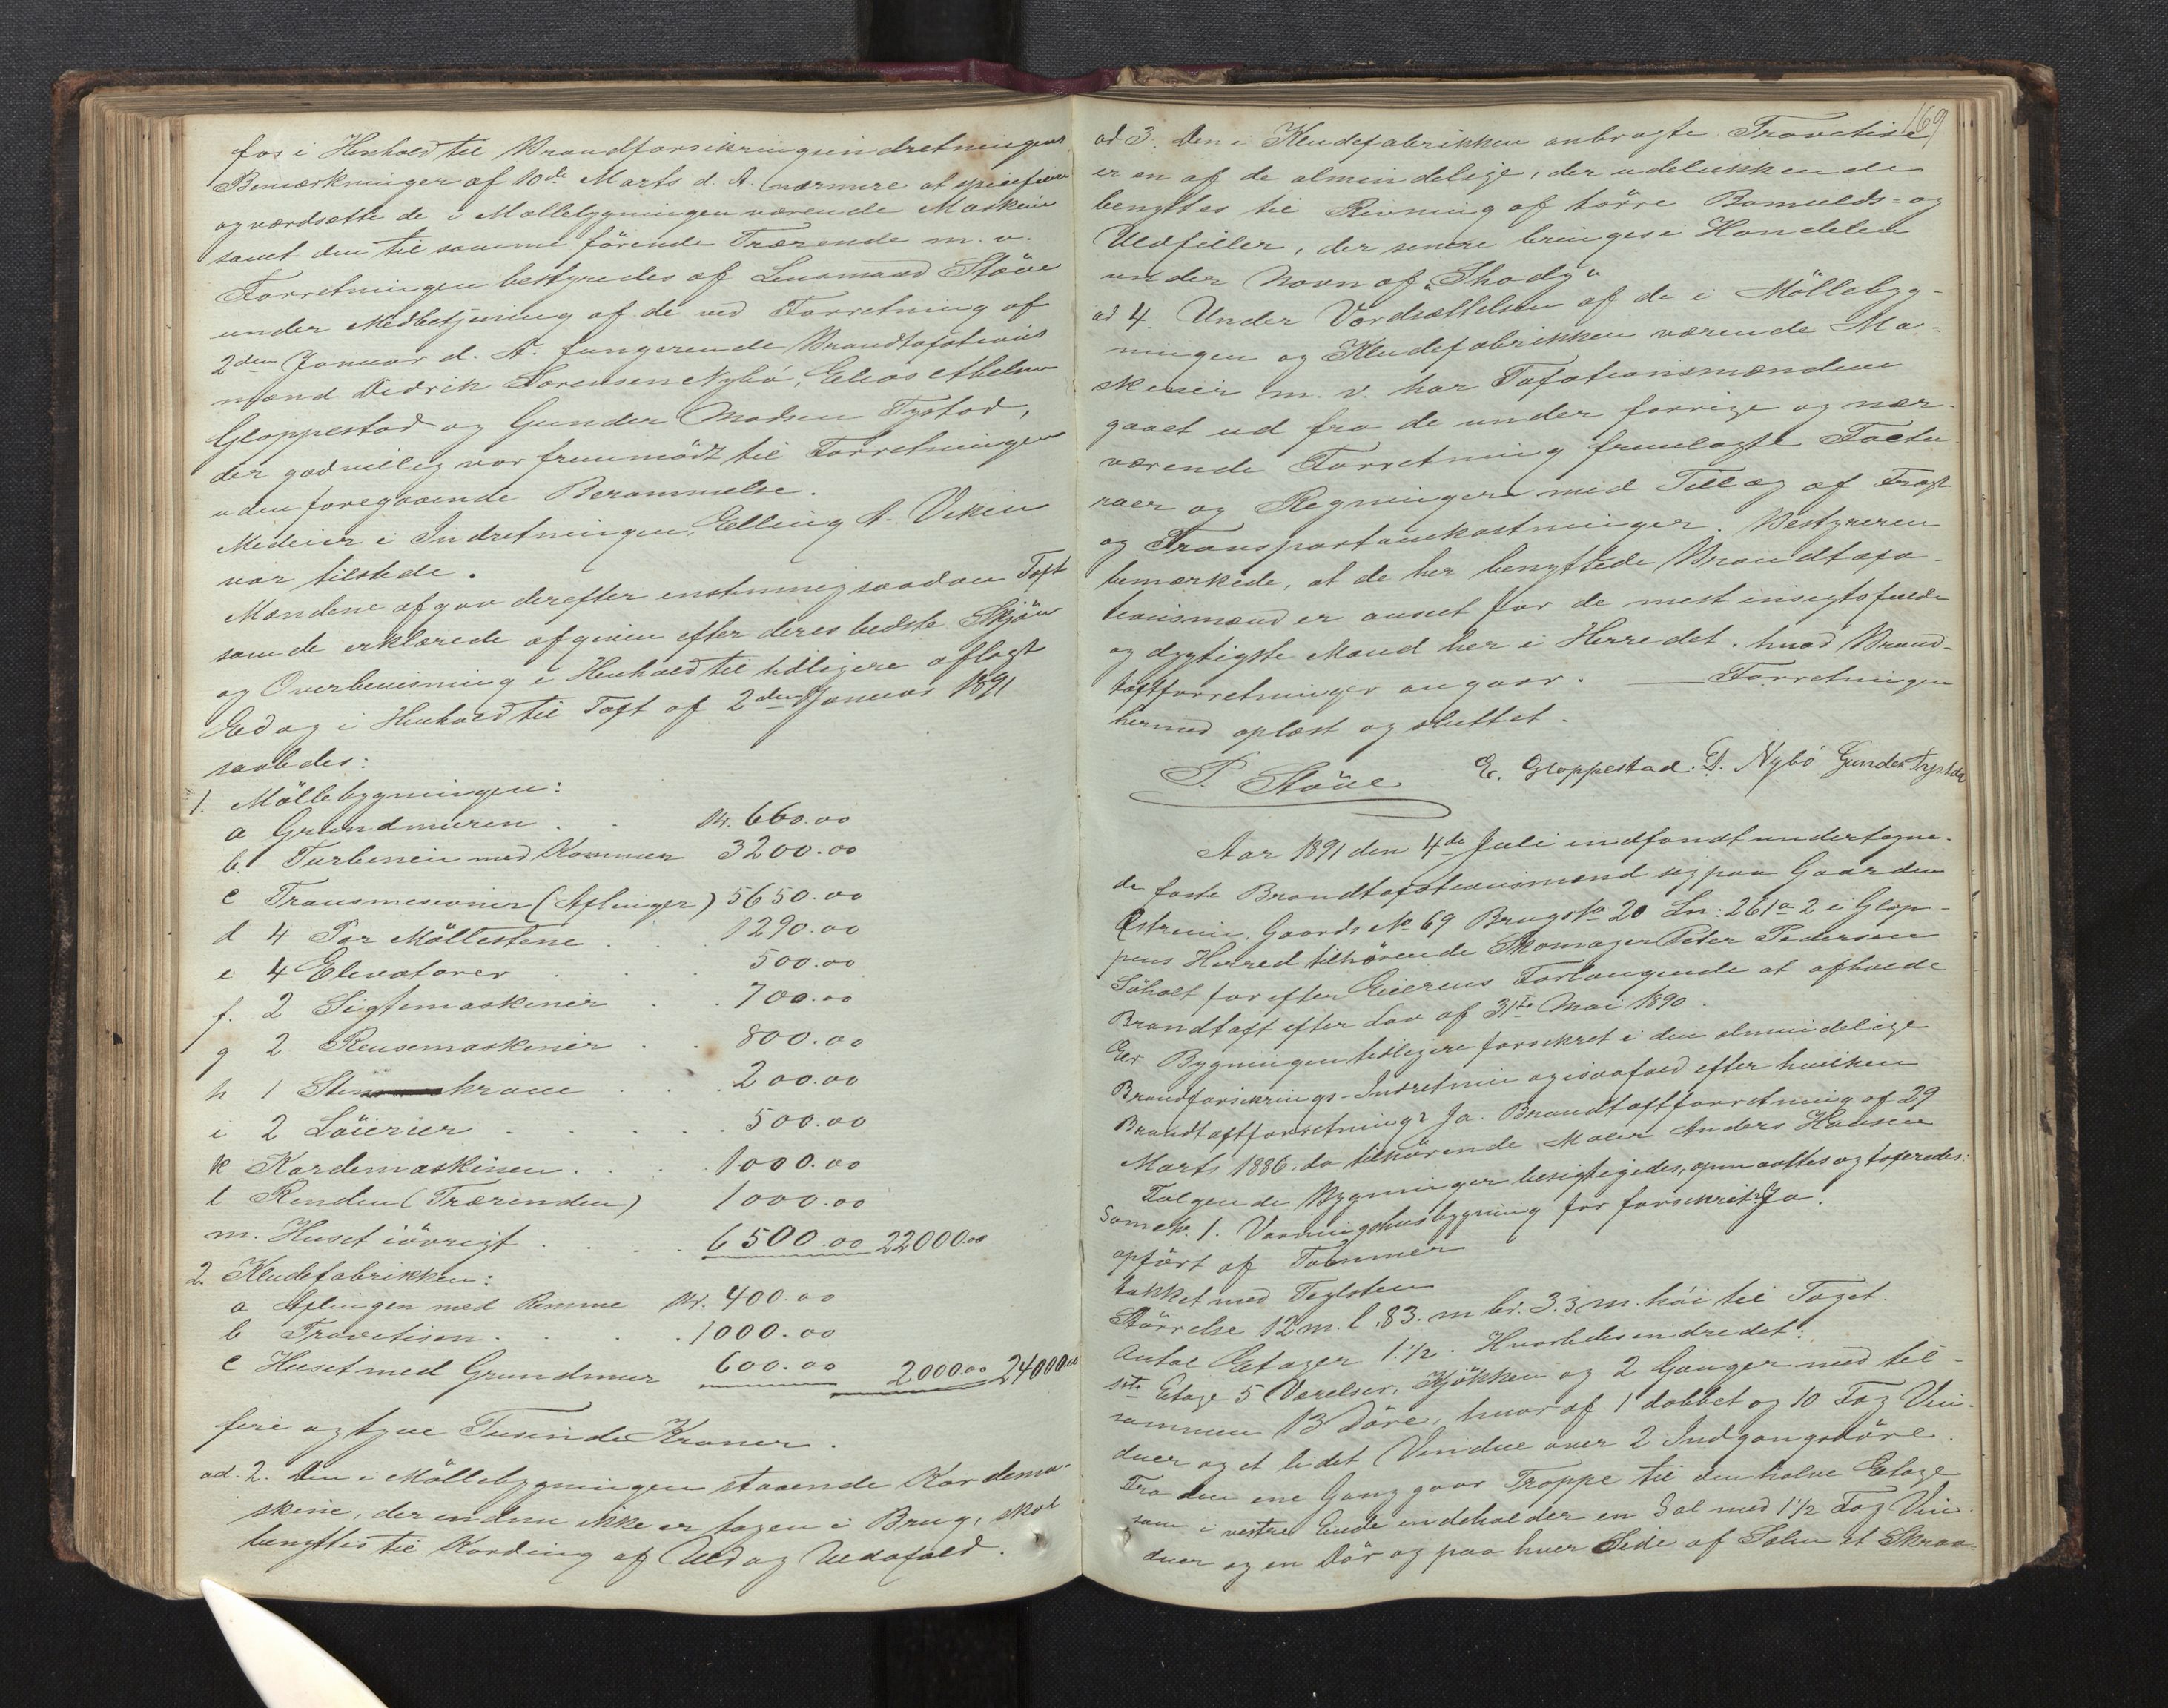 for i Henhold til Brandforsikringsindretningens
Bemærkninger af 10de Marts d. A. nærmere at specificere
og værdsætte de i Møllebygningen værende Maskiner
samt den til samme förende Trærende m. v.
Forretningen bestyredes af Lensmand Støve
under Medbetjening af de ved Forretning af
2den Januar d. A. fungerende Brandtaxations
mænd Didrik Sorensen Nybö, Elias Abelsen
Gloppestad og Gunder Madsen Tystad,
der godvillig var fremmödt til Forretningen
uden foregaaende Berammelse.
Medeier i Indretningen, Elling A. Viken
var tilstede.
Mændene afgav derefter enstemmig saadan Taxt
som de erklærede afgiven efter deres bedste Skjön
og Overbevisning i Henhold til tidligere aflagt
Eed og i Henhold til Taxt af 2den Januar 1891
saaledes:
1. Möllebygningen:
a Grundmuren . . Kr. 660.00
b. Turbinen med Kammer 3200.00
c Transmesioner (Axlinger) 5650.00
d 4 Par Möllestene . . 1290.00
e 4 Elevatorer . . . 500.00
f. 2 Sigtemaskiner . . 700.00
g 2 Rensemaskiner . . 800.00
h 1 Stenkrane . . . 200.00
i 2 Löierier . . . . 500.00
k Kardemaskinen . . . 1000.00
l Renden (Trærenden) 1000.00
m. Huset iövrigt . . . . 6500.00 22000.00
2. Kludefabrikken:
a Axlingen med Remme Kr. 400.00
b Travetisen . . . . 1000.00
c Huset med Grundmur 600.00 2000.00 24000.00
fire og tyve Tusinde Kroner.
ad. 2. Den i Möllebygningen staaende Kardema-
skine, der endnu ikke er tagen i Brug, skal
benyttes til Karding af Uld og Uldafald.
169
ad 3. Den i Kludefabrikken anbragte Travetise
er en af de almindelige, der udelukkende
benyttes til Rivning af törre Bomulds= og
Uldfiller, der senere bringes i Handelen
under Navn af "Shody"
ad 4. Under Værdsættelsen af de i Möllebyg-
ningen og Kludefabrikken værende Ma=
skiner m. v. har Taxationsmændene
gaaet ud fra de under forrige og nær-
værende Forretning fremlagte Factu
raer og Regninger med Tillæg af Fragt
og Transportomkostninger. Bestyreren
bemærkede, at de her benyttede Brandtaxa-
tionsmænd er anseet for de mest insigtsfulde
og dygtigste Mænd her i Herredet, hvad Brand-
taxtforretninger angaar. — Forretningen
hermed oplæst og sluttet.
P. Stöve E. Gloppestad. D. Nybö Gunder Tystad
Aar 1891 den 4de Juli indfandt undertegne-
de faste Brandtaxationsmænd sig paa Gaarden
Gaards No 69 Brugs No 20 Ln: 261a 2 i Glop-
pens Herred tilhörende Skomager Peter Pedersen
Söholt for efter Eierens Forlangende at afholde
Brandtaxt efter Lov af 31te Mai 1890.
Er Bygningen tidligere forsikret i den almindelige
Brandforsikrings-Indretnin og isaafald efter hvilken
Brandtaxtforretning? Ja. Brandtaxtforretning af 29
Marts 1886, da tilhörende Maler Anders Hansen
Fölgende Bygninger besigtigedes, opmaaltes og taxeredes:
Som No. 1. Vaaningshusbygning för forsikret? Ja.
opfört af Tömmer
tækket med Taglsten
Störrelse 12 m. l. 83. m br. 3.3 m. höi til Taget.
Antal Etager 1.1/2. Hvorledes indredet:
1ste Etage 5 Værelser, Kjökken og 2 Gange med til-
sammen 13 Döre, hvoraf 1 dobbet og 10 Fag Vin-
duer og et lidet Vindue over 2 Indgangsdöre.
Fra den ene Gang gaar Trappe til den halve Etage
som i vestre Ende indeholder en Sal med 1 1/2 Fag Vin
duer og en Dör og paa hver Side af Salen et Skraa=